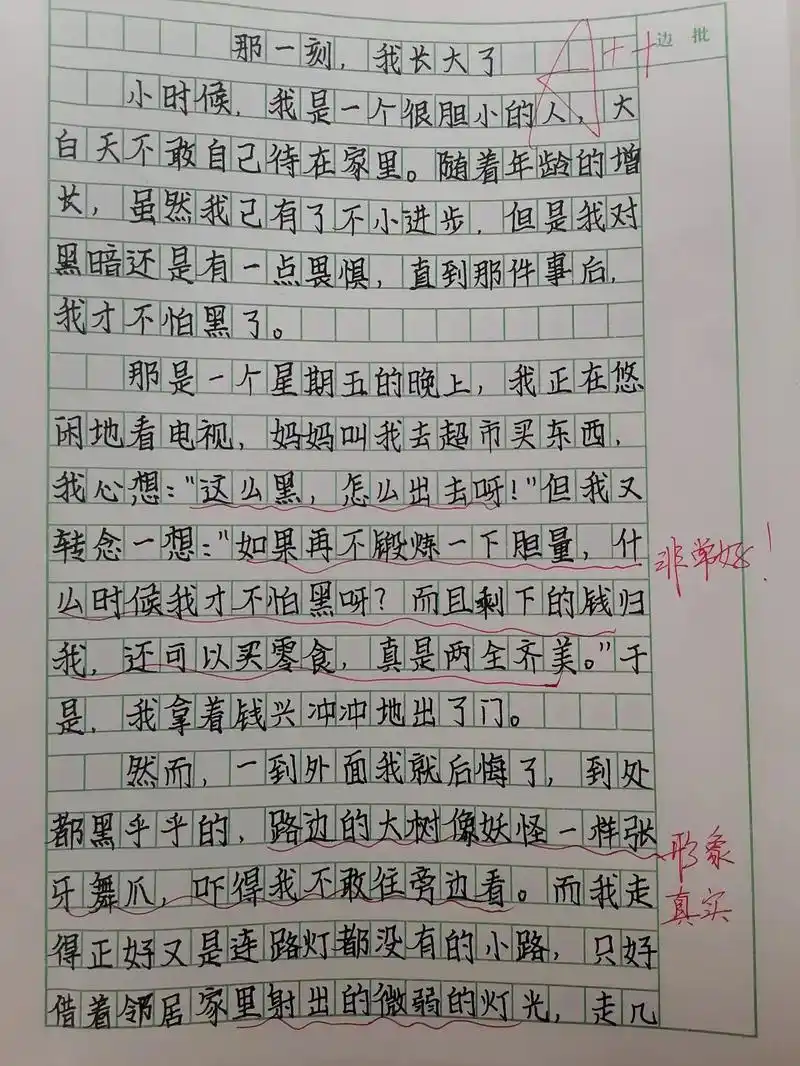 那一刻，我长大了
A++
边批
小时候，我是一个很胆小的人，大
白天不敢自己待在家里。随着年龄的增
长，虽然我己有了不小进步，但是我对
黑暗还是有一点畏惧，直到那件事后，
我才不怕黑了。
那是一个星期五的晚上，我正在悠
闲地看电视，妈妈叫我去超市买东西，
我心想："这么黑，怎么出去呀！"但我又
转念一想："如果再不锻炼一下胆量，什
么时候我才不怕黑呀？而且剩下的钱归
我，还可以买零食，真是两全齐美。"于
是，我拿着钱兴冲冲地出了门。
非常好！
然而，一到外面我就后悔了，到处
都黑乎乎的，路边的大树像妖怪一样张
牙舞爪，吓得我不敢往旁边看。而我走
得正好又是连路灯都没有的小路，只好
借着邻居家里射出的微弱的灯光，走几
形象
真实